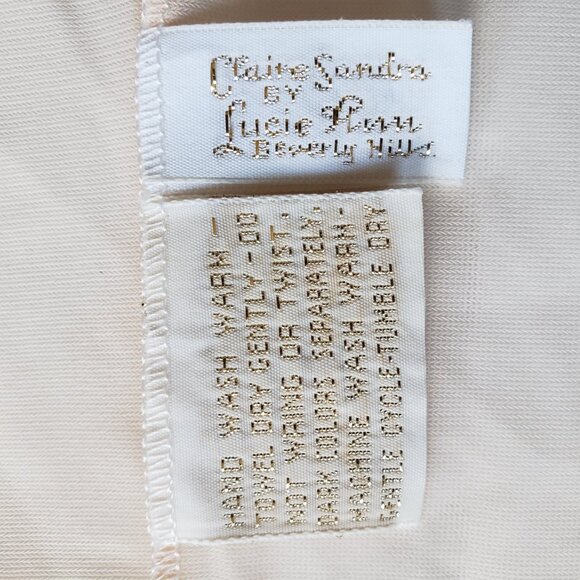 Claire Sandra
BY
Lucie Ann
Beverly Hills
HAND WASH WARM—
TOWEL DRY GENTLY-DO
NOT WRING OR TWIST.
DARK COLORS SEPARATELY.
MACHINE WASH WARM-
GENTLE CYCLE-TUMBLE DRY